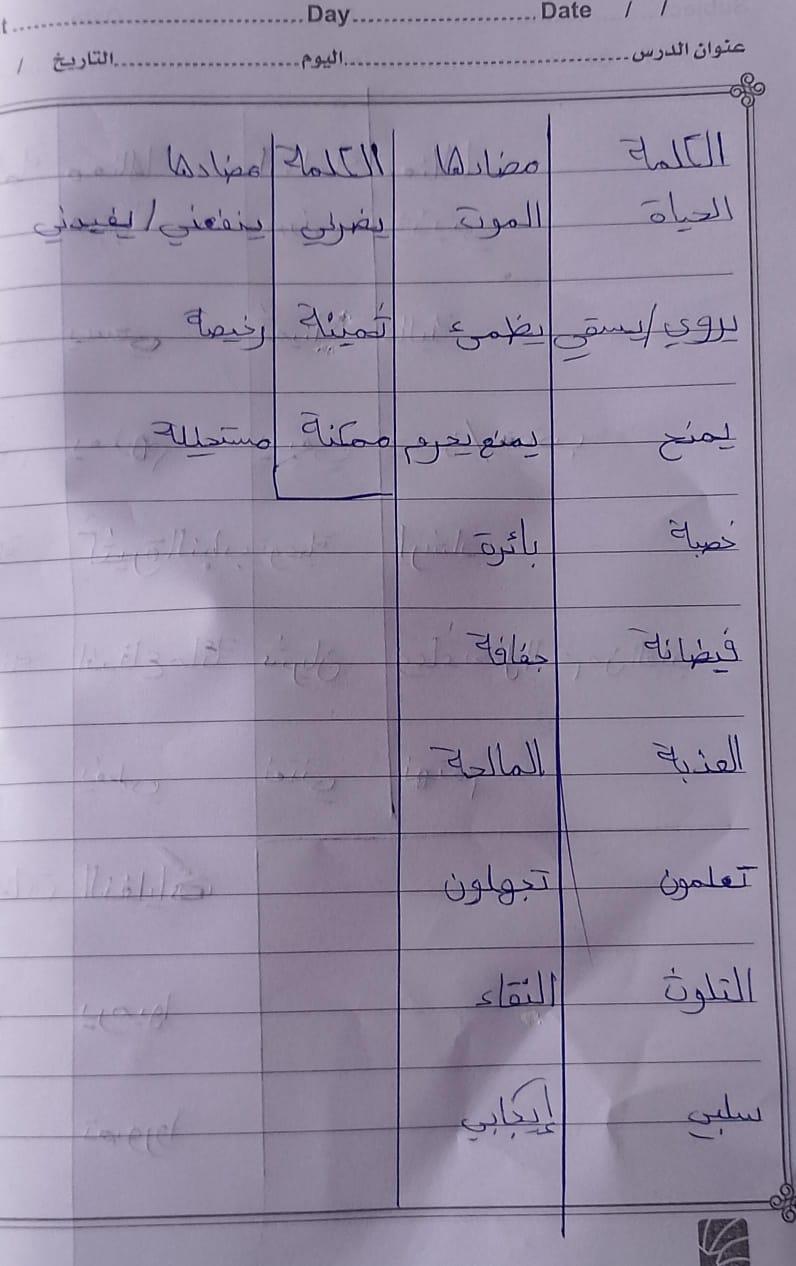 t........................................Day..............................Date / /
عنوان الدرس........................................اليوم..............................التاريخ /
الكلمة مضادها الكلمة مضادها
الحياة الموت يضرني ينفعني/يفيدني
يروي/يسقي يظمئ ثمينة رخيصة
يمنح يمنع يحرم ممكنة مستحيلة
خصبة بائرة
فيضانة جفافة
العذبة المالحة
تعلمون تجهلون
التلوث النقاء
سلبي إيجابي